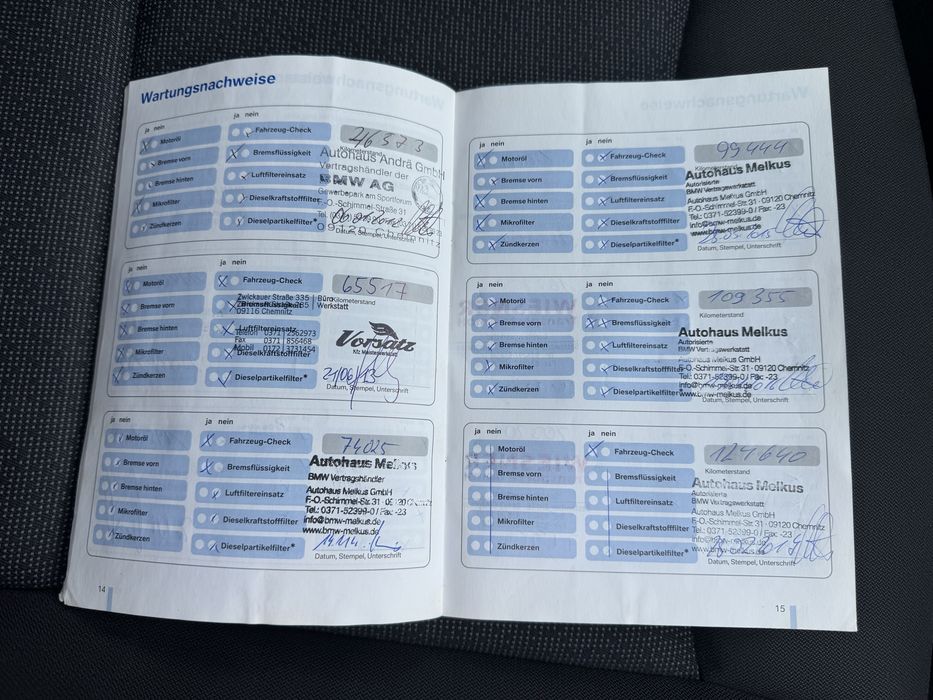 Wartungsnachweise
ja nein
Motoröl
Bremse vorn
Bremse hinten
Mikrofilter
Zündkerzen
Fahrzeug-Check
Bremsflüssigkeit
Luftfiltereinsatz
Dieselkraftstofffilter
Dieselpartikelfilter*
Kilometerstand
Autohaus Andrä GmbH
Vertragshändler der
BMW AG
Gewerbepark am Sportforum
F.-O.-Schimmel-Straße 31
09120 Chemnitz
Datum, Stempel, Unterschrift
ja nein
ja nein
Motoröl
Bremse vorn
Bremse hinten
Mikrofilter
Zündkerzen
Fahrzeug-Check
Bremsflüssigkeit
Luftfiltereinsatz
Dieselkraftstofffilter
Dieselpartikelfilter*
65517
Kilometerstand
Zwickauer Straße 335 | Büro
Werkstatt
09116 Chemnitz
Telefon 0371 | 2562973
Fax 0371 | 856468
Mobil 0172 | 3731454
Vorsatz
Kfz Meisterwerkstatt
21/06/13
Datum, Stempel, Unterschrift
ja nein
ja nein
Motoröl
Bremse vorn
Bremse hinten
Mikrofilter
Zündkerzen
Fahrzeug-Check
Bremsflüssigkeit
Luftfiltereinsatz
Dieselkraftstofffilter
Dieselpartikelfilter*
74025
Autohaus Melkus
BMW Vertragshändler
Autohaus Melkus GmbH
F.-O.-Schimmel-Str. 31 · 09120 Chemnitz
Tel.: 0371-52399-0 / Fax: -23
info@bmw-melkus.de
www.bmw-melkus.de
Datum, Stempel, Unterschrift
14
ja nein
ja nein
Motoröl
Bremse vorn
Bremse hinten
Mikrofilter
Zündkerzen
Fahrzeug-Check
Bremsflüssigkeit
Luftfiltereinsatz
Dieselkraftstofffilter
Dieselpartikelfilter*
99444
Kilometerstand
Autohaus Melkus
Autorisierte
BMW Vertragswerkstatt
Autohaus Melkus GmbH
F.-O.-Schimmel-Str. 31 · 09120 Chemnitz
Tel.: 0371-52399-0 / Fax: -23
info@bmw-melkus.de
www.bmw-melkus.de
Datum, Stempel, Unterschrift
ja nein
ja nein
Motoröl
Bremse vorn
Bremse hinten
Mikrofilter
Zündkerzen
Fahrzeug-Check
Bremsflüssigkeit
Luftfiltereinsatz
Dieselkraftstofffilter
Dieselpartikelfilter*
109355
Kilometerstand
Autohaus Melkus
Autorisierte
BMW Vertragswerkstatt
Autohaus Melkus GmbH
F.-O.-Schimmel-Str. 31 · 09120 Chemnitz
Tel.: 0371-52399-0 / Fax: -23
info@bmw-melkus.de
www.bmw-melkus.de
Datum, Stempel, Unterschrift
ja nein
ja nein
Motoröl
Bremse vorn
Bremse hinten
Mikrofilter
Zündkerzen
Fahrzeug-Check
Bremsflüssigkeit
Luftfiltereinsatz
Dieselkraftstofffilter
Dieselpartikelfilter*
124640
Kilometerstand
Autohaus Melkus
Autorisierte
BMW Vertragswerkstatt
Autohaus Melkus GmbH
F.-O.-Schimmel-Str. 31 · 09120 Chemnitz
Tel.: 0371-52399-0 / Fax: -23
info@bmw-melkus.de
www.bmw-melkus.de
Datum, Stempel, Unterschrift
15